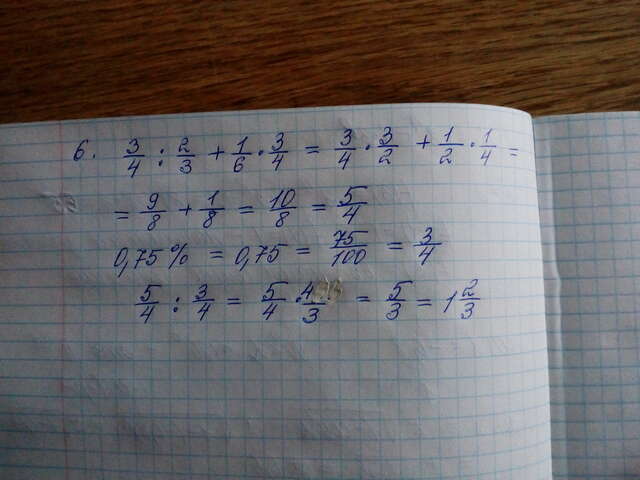 6. 3/4 : 2/3 + 1/6 · 3/4 = 3/4 · 3/2 + 1/2 · 1/4 =
= 9/8 + 1/8 = 10/8 = 5/4
0,75% = 0,75 = 75/100 = 3/4
5/4 : 3/4 = 5/4 · 4/3 = 5/3 = 1 2/3